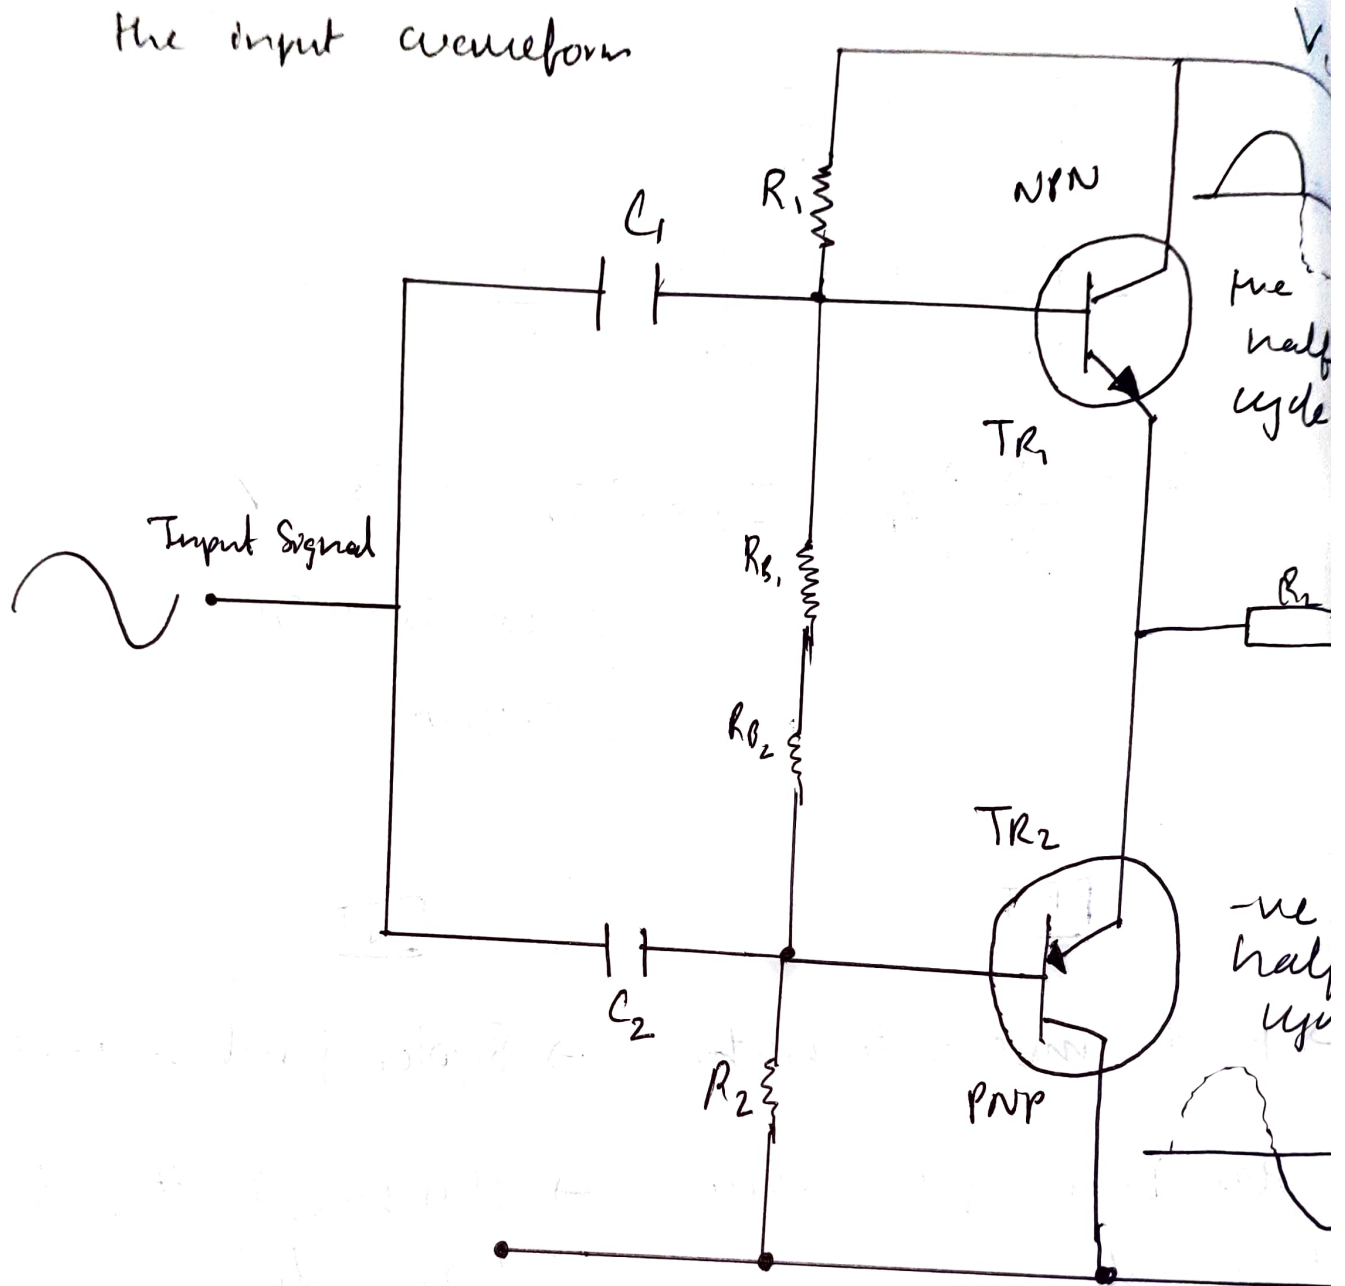 the input waveform
V
R₁
NPN
C₁
+ve
half
cycle
TR₁
Input Signal
RB₁
RL
RB₂
TR₂
-ve
half
C₂
R₂
PNP